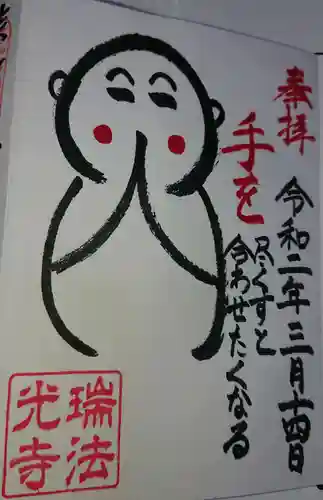 奉拝
令和二年三月十四日
手を
尽くすと
合わせたくなる
瑞法
光寺